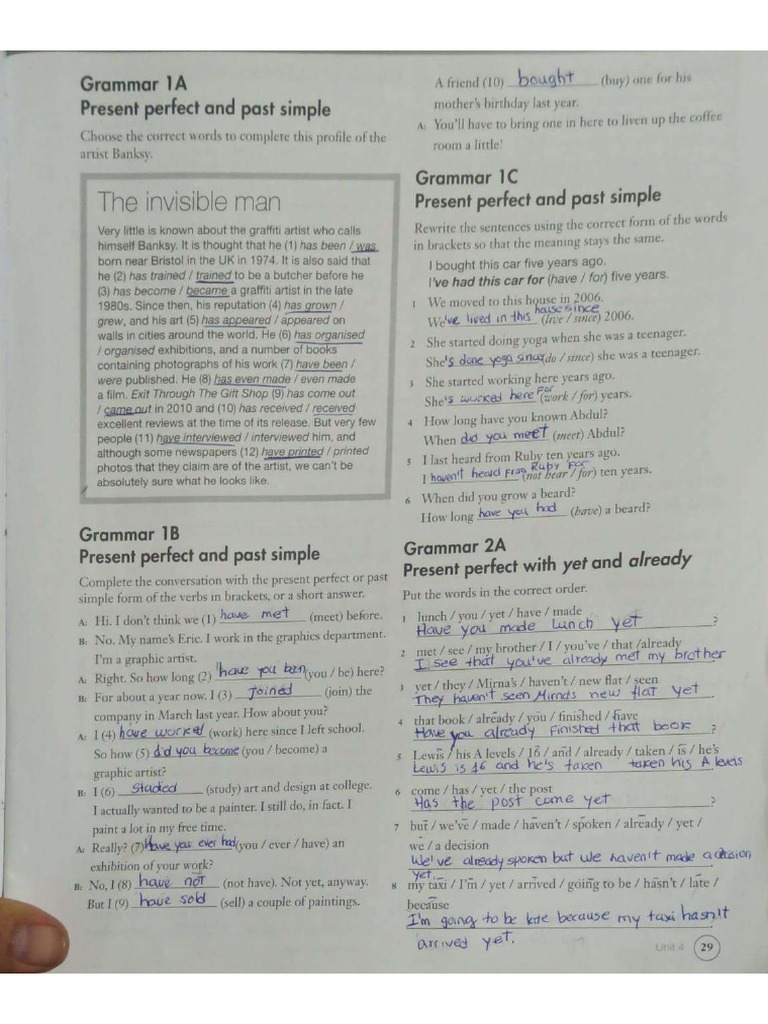 Grammar 1A
Present perfect and past simple
Choose the correct words to complete this profile of the
artist Banksy.
The invisible man
Very little is known about the graffiti artist who calls
himself Banksy. It is thought that he (1) has been / was
born near Bristol in the UK in 1974. It is also said that
he (2) has trained / trained to be a butcher before he
(3) has become / became a graffiti artist in the late
1980s. Since then, his reputation (4) has grown /
grew, and his art (5) has appeared / appeared on
walls in cities around the world. He (6) has organised
/ organised exhibitions, and a number of books
containing photographs of his work (7) have been /
were published. He (8) has even made / even made
a film. Exit Through The Gift Shop (9) has come out
/ came out in 2010 and (10) has received / received
excellent reviews at the time of its release. But very few
people (11) have interviewed / interviewed him, and
although some newspapers (12) have printed / printed
photos that they claim are of the artist, we can't be
absolutely sure what he looks like.
Grammar 1B
Present perfect and past simple
Complete the conversation with the present perfect or past
simple form of the verbs in brackets, or a short answer.
A: Hi. I don't think we (1) have met (meet) before.
B: No. My name's Eric. I work in the graphics department.
I'm a graphic artist.
A: Right. So how long (2) have you been (you / be) here?
B: For about a year now. I (3) Joined (join) the
company in March last year. How about you?
A: I (4) have worked (work) here since I left school.
So how (5) did you become (you / become) a
graphic artist?
B: I (6) studied (study) art and design at college.
I actually wanted to be a painter. I still do, in fact. I
paint a lot in my free time.
A: Really? (7) Have you ever had (you / ever / have) an
exhibition of your work?
B: No, I (8) have not (not have). Not yet, anyway.
But I (9) have sold (sell) a couple of paintings.
A friend (10) bought (buy) one for his
mother's birthday last year.
A: You'll have to bring one in here to liven up the coffee
room a little!
Grammar 1C
Present perfect and past simple
Rewrite the sentences using the correct form of the words
in brackets so that the meaning stays the same.
I bought this car five years ago.
I've had this car for (have / for) five years.
1 We moved to this house in 2006.
We've lived in this house since (live / since) 2006.
2 She started doing yoga when she was a teenager.
She's done yoga since (do / since) she was a teenager.
3 She started working here years ago.
She's worked here For (work / for) years.
4 How long have you known Abdul?
When did you meet (meet) Abdul?
5 I last heard from Ruby ten years ago.
I haven't heard From Ruby For (not hear / for) ten years.
6 When did you grow a beard?
How long have you had (have) a beard?
Grammar 2A
Present perfect with yet and already
Put the words in the correct order.
1 lunch / you / yet / have / made
Have you made lunch yet ?
2 met / see / my brother / I / you've / that / already
I see that you've already met my brother
3 yet / they / Mirna's / haven't / new flat / seen
They haven't seen Mirna's new flat yet
4 that book / already / you / finished / have
Have you already Finished that book ?
5 Lewis / his A levels / 16 / and / already / taken / is / he's
Lewis is 16 and he's taken taken his A levels
6 come / has / yet / the post
Has the post come yet ?
7 but / we've / made / haven't / spoken / already / yet /
we / a decision
We've already spoken but we haven't made a decision
yet.
8 my taxi / I'm / yet / arrived / going to be / hasn't / late /
because
I'm going to be late because my taxi hasn't
arrived yet.
Unit 4 29